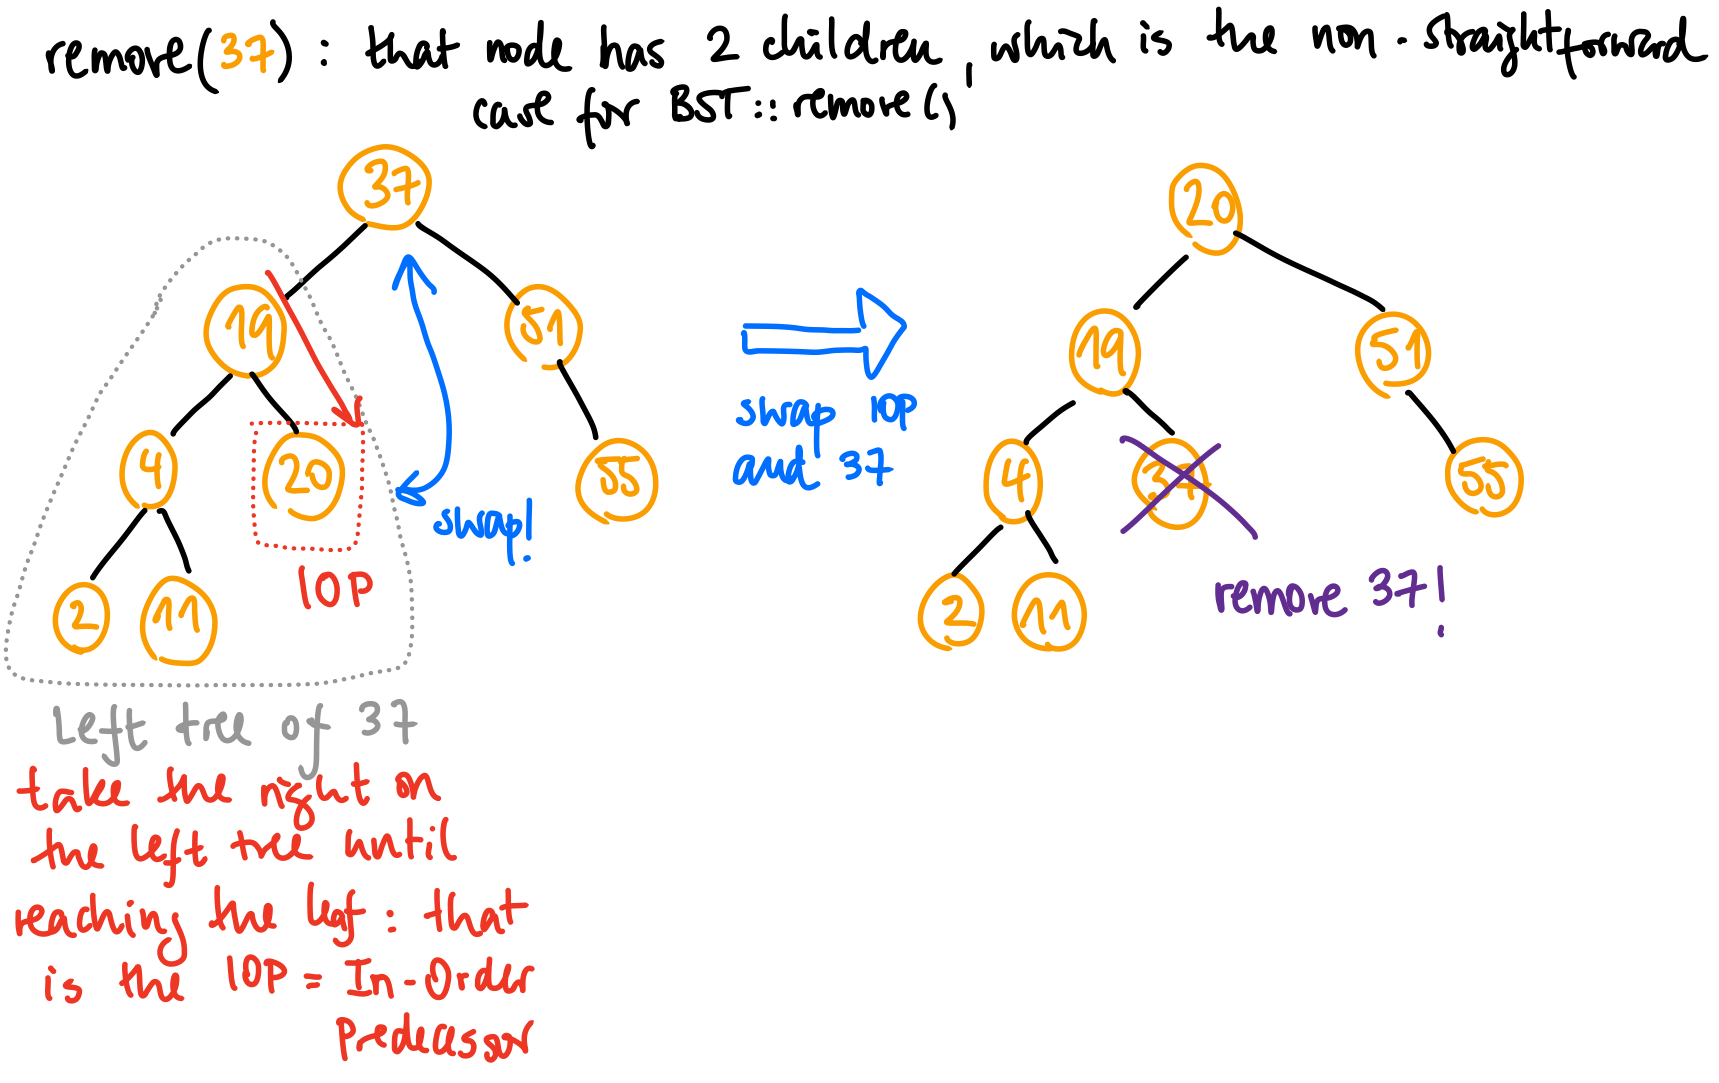 remove(37) : that node has 2 children, which is the non-straightforward
case for BST::remove()
37
19
51
4
20
55
2
11
IOP
swap!
Left tree of 37
take the right on
the left tree until
reaching the leaf : that
is the IOP = In-Order
Predecessor
swap IOP
and 37
20
19
51
4
37
55
2
11
remove 37!